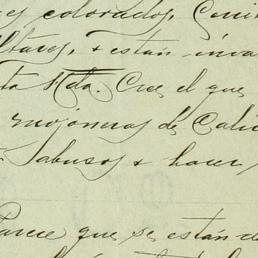 es colorados, Cruci
ltares, & están inva
ta Hda. Cree el que
mojoneras de Cali
Sabusos & hacer
Parece que se están de